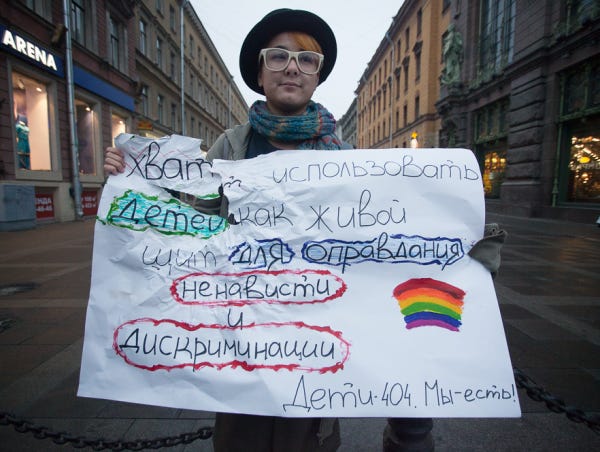 ARENA
хватит использовать
детей как живой
щит для оправдания
ненависти
и
дискриминации
Дети-404. Мы-есть!